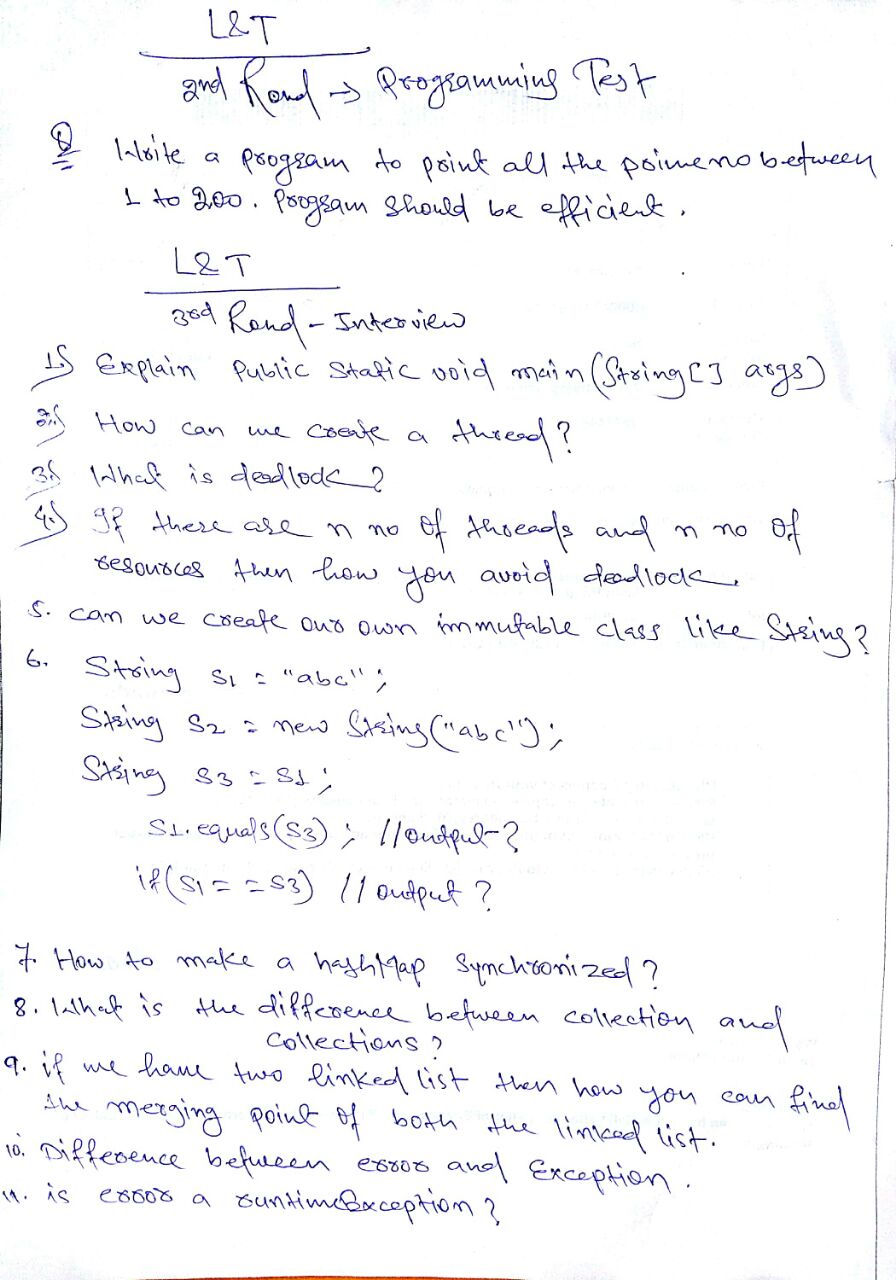 L&T
2nd Rond → Programming Test
Q Write a program to print all the prime no between
1 to 200. Program should be efficient.
L&T
3rd Rond - Interview
1.) Explain Public Static void main (String[] args)
2.) How can we create a thread?
3.) What is deadlock?
4.) If there are n no of threads and n no of
resources then how you avoid deadlock.
5. can we create our own immutable class like String?
6. String S1 = "abc";
String S2 = new String("abc");
String S3 = S1;
S1.equals(S3); //output-?
if(S1==S3) //output?
7. How to make a hashMap Synchronized?
8. What is the difference between collection and
Collections?
9. if we have two linked list then how you can find
the merging point of both the linked list.
10. Difference between error and Exception.
11. is error a runtimeException?